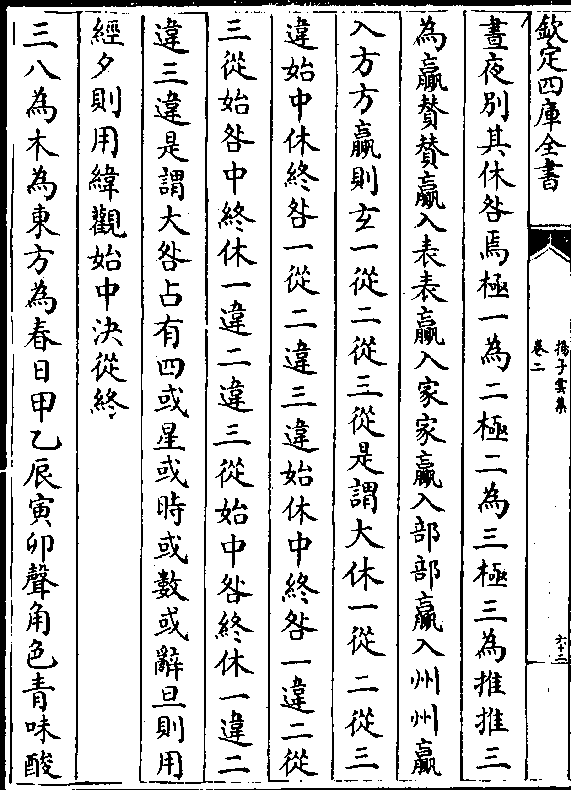 欽定四庫全書
揚子雲集
卷二
六十二
晝夜別其休咎焉極一為二極二為三極三為推推三
為贏贊贊贏入表表贏入家家贏入部部贏入州州贏
入方方贏則玄一從二從三從是謂大休一從二從三
違始中休終咎一從二違三違始休中終咎一違二從
三從始咎中終休一違二違三從始中咎終休一違二
違三違是謂大咎占有四或星或時或數或辭旦則用
經夕則用緯觀始中決從終
三八為木為東方為春日甲乙辰寅卯聲角色青味酸